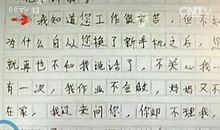 CCTV 13
CNTV
我知道您工作很辛苦,但不
为什么自从您换了新手机之后,你
就再也不和我说话了,不关心我
有一次,我作业不会做,妈妈又不
在家,我过来问你,你却不理我